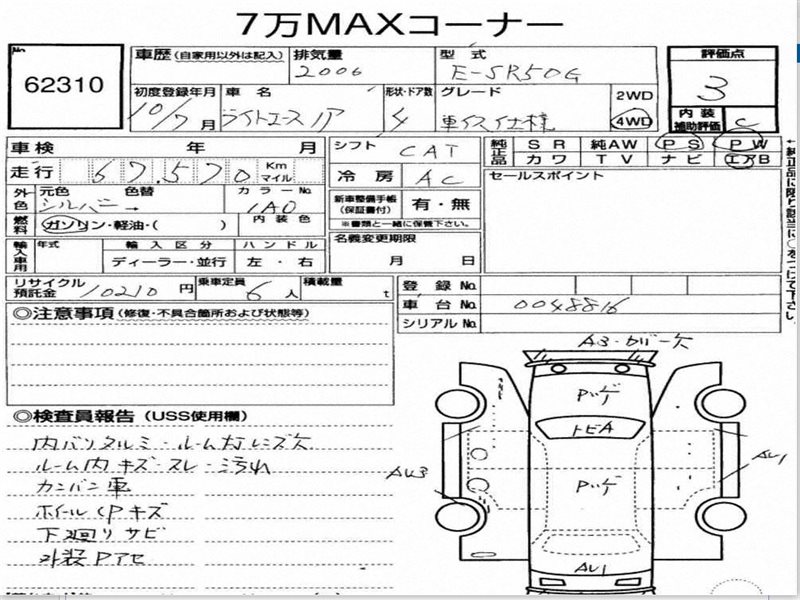 7万MAXコーナー
No.
62310
車歴(自家用以外は記入)
排気量
2000
型式
E-SR50G
評価点
3
初度登録年月
10/7月
車名
ライトエースノア
形状・ドア数
4
グレード
車イス仕様
2WD
4WD
内装
補助評価
C
車検 年 月
シフト
CAT
純正品
SR 純AW PS PW
カワ TV ナビ エアB
走行
67,570
Km
マイル
冷房
AC
セールスポイント
外色
元色 色替
シルバー→
カラーNo.
1A0
新車整備手帳
(保証書付)
有・無
※書類と一緒に保管下さい。
燃料
ガソリン・軽油・( )
内装色
輸入車用
年式
輸入区分
ハンドル
ディーラー・並行
左・右
名義変更期限
月 日
リサイクル
預託金
10210円
乗車定員
6人
積載量
t
登録No.
車台No.
0048816
シリアルNo.
◎注意事項(修復・不具合箇所および状態等)
◎検査員報告(USS使用欄)
内バリタルミ・ルーム灯レンズ欠
ルーム内キズ・スレ・汚れ
カンバン車
ホイールCPキズ
下廻りサビ
外装Pアセ
A3・カバー欠
Pハゲ
トビA
Pハゲ
AU3
AU1
AU1